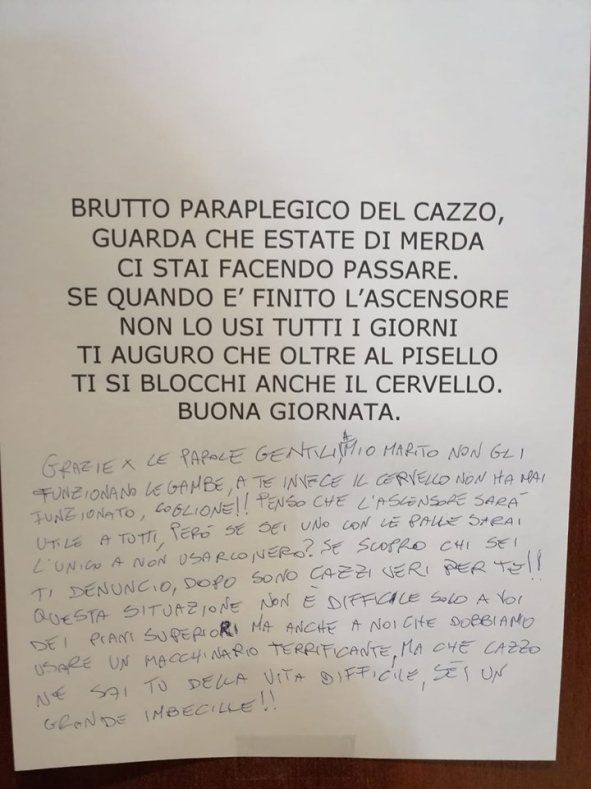 BRUTTO PARAPLEGICO DEL CAZZO,
GUARDA CHE ESTATE DI MERDA
CI STAI FACENDO PASSARE.
SE QUANDO E' FINITO L'ASCENSORE
NON LO USI TUTTI I GIORNI
TI AUGURO CHE OLTRE AL PISELLO
TI SI BLOCCHI ANCHE IL CERVELLO.
BUONA GIORNATA.
GRAZIE X LE PAROLE GENTILI, A MIO MARITO NON GLI
FUNZIONANO LE GAMBE, A TE INVECE IL CERVELLO NON HA MAI
FUNZIONATO, COGLIONE!! PENSO CHE L'ASCENSORE SARÀ
UTILE A TUTTI, PERÒ SE SEI UNO CON LE PALLE SARAI
L'UNICO A NON USARLO, VERO? SE SCOPRO CHI SEI
TI DENUNCIO, DOPO SONO CAZZI VERI PER TE!!
QUESTA SITUAZIONE NON È DIFFICILE SOLO A VOI
DEI PIANI SUPERIORI MA ANCHE A NOI CHE DOBBIAMO
USARE UN MACCHINARIO TERRIFICANTE, MA CHE CAZZO
NE SAI TU DELLA VITA DIFFICILE, SEI UN
GRANDE IMBECILLE!!